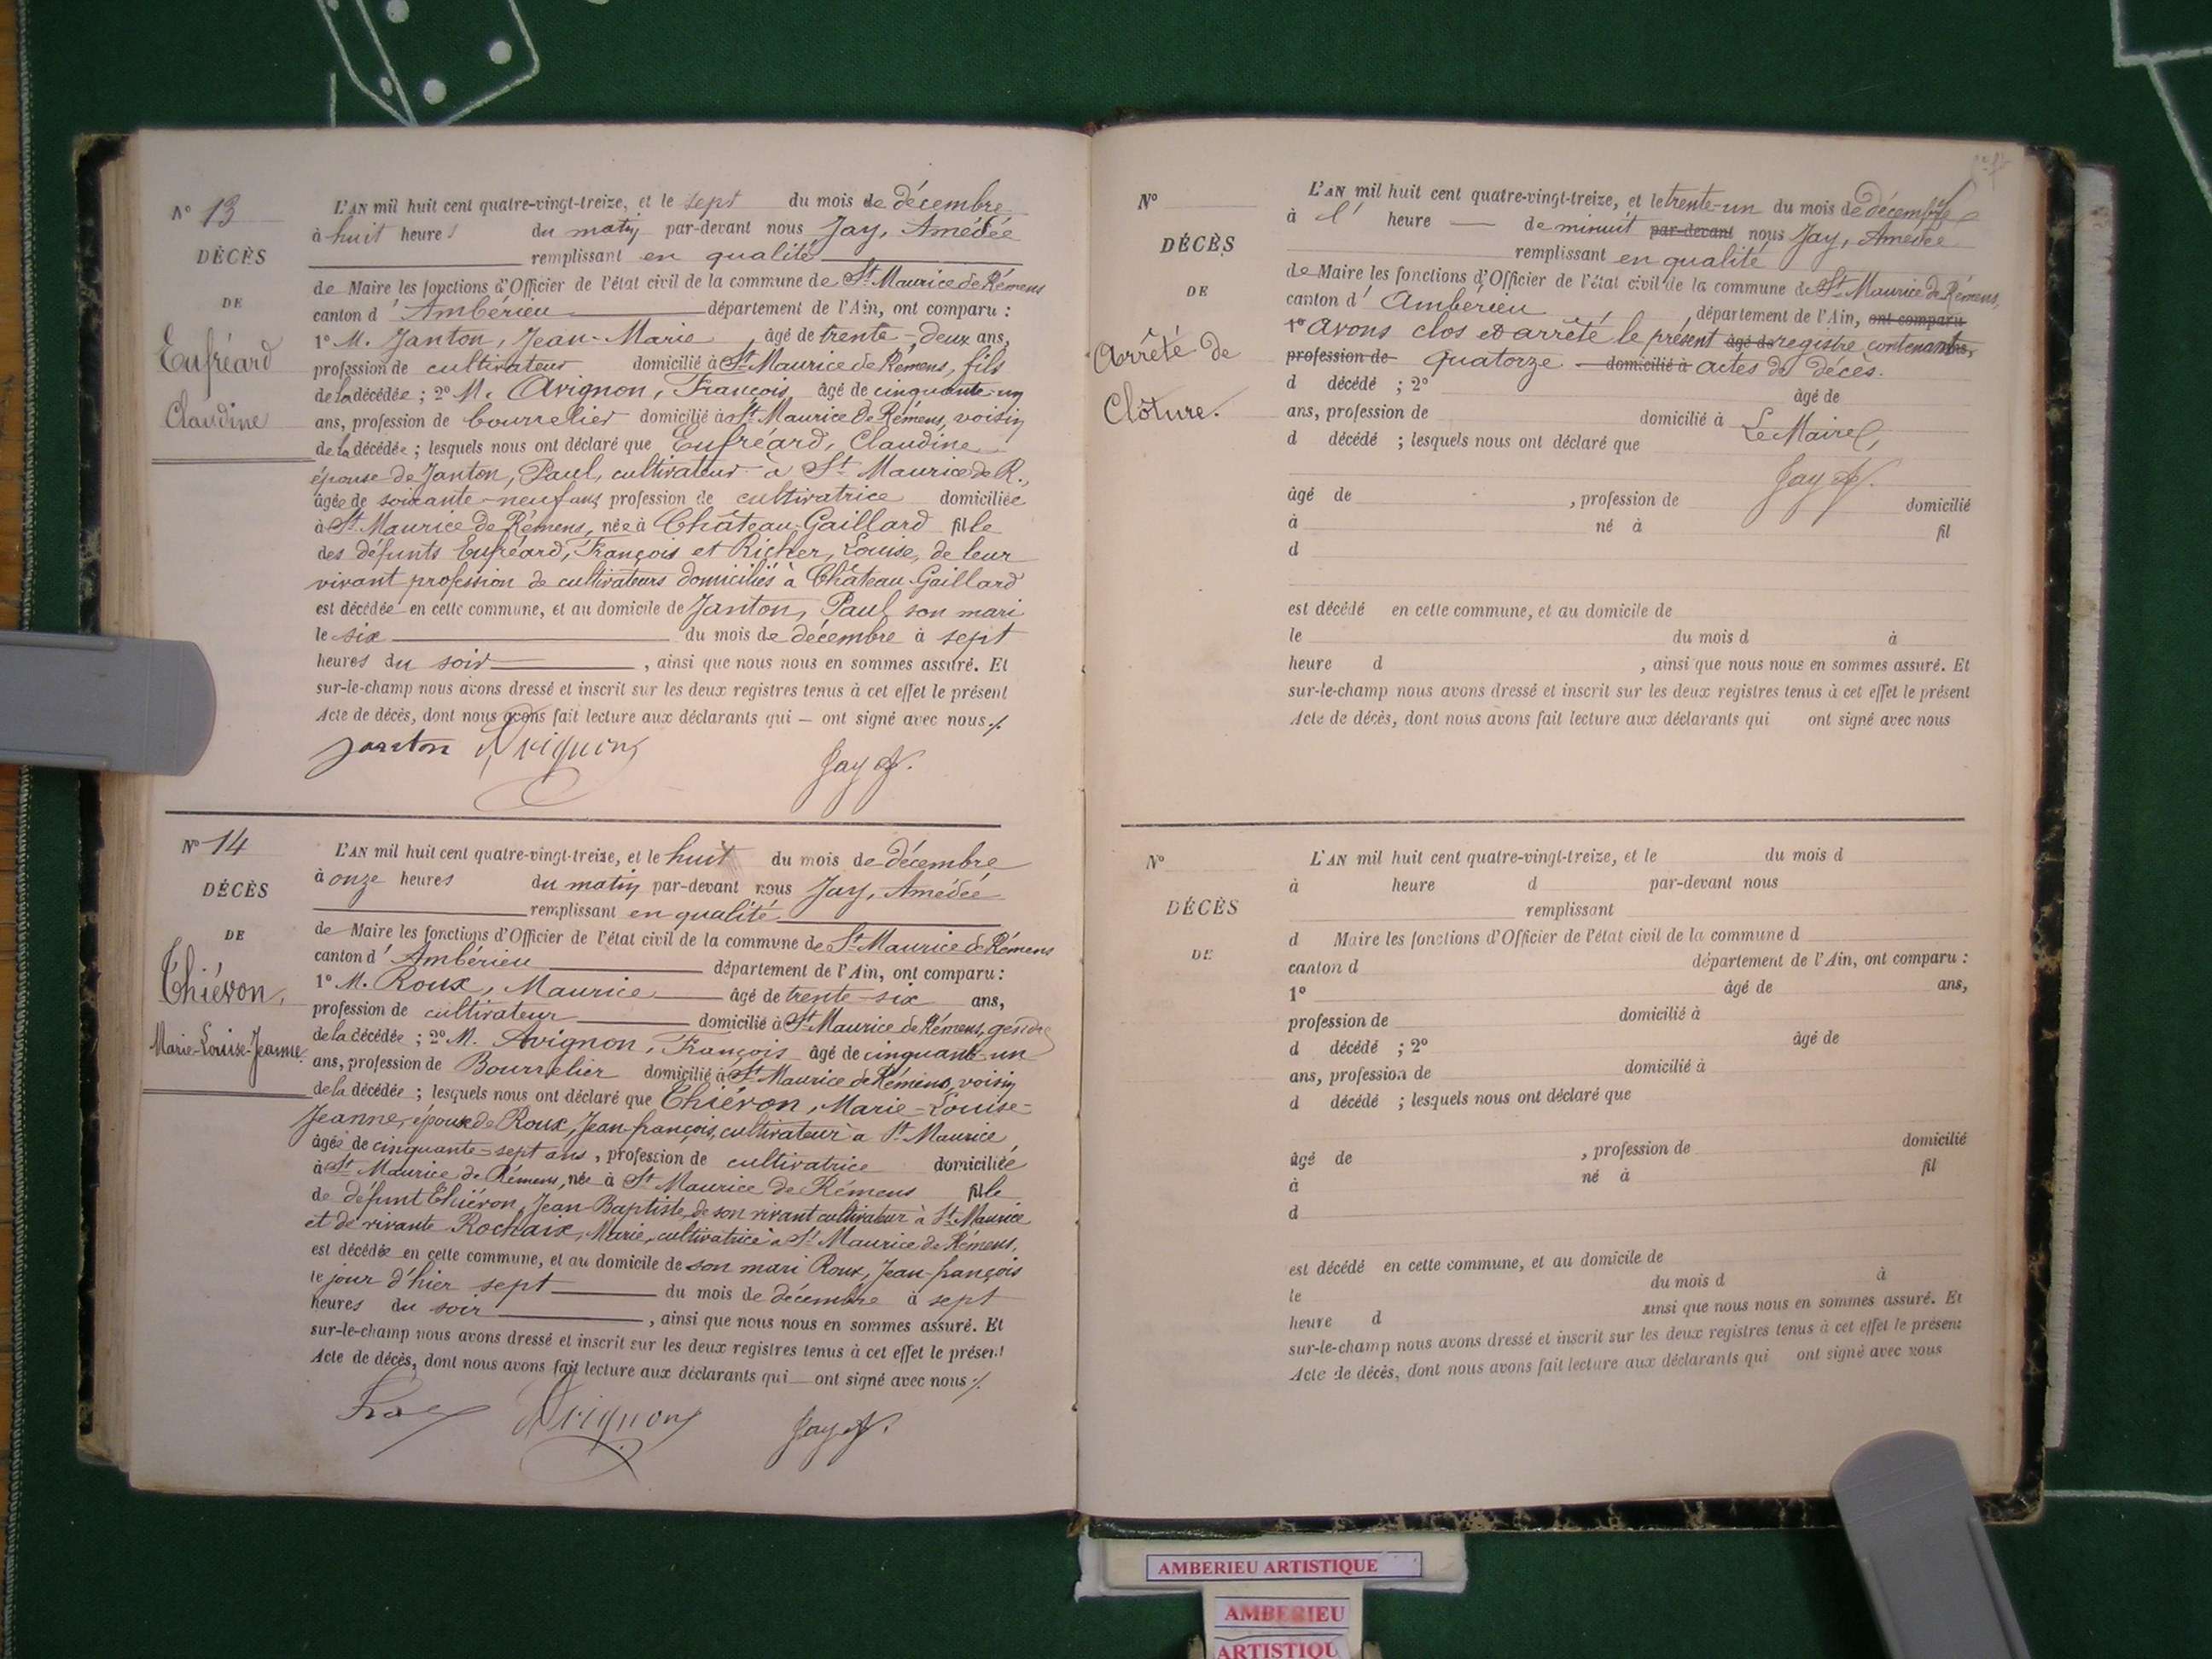 N° 13
DÉCÈS
DE
Eufréard
Claudine
L'AN mil huit cent quatre-vingt-treize, et le sept du mois de décembre
à huit heures du matin par-devant nous Jay, Amédée
remplissant en qualité
de Maire les fonctions d'Officier de l'état civil de la commune de St Maurice de Rémens
canton d'Ambérieu département de l'Ain, ont comparu :
1° M. Janton, Jean-Marie, âgé de trente-deux ans,
profession de cultivateur domicilié à St Maurice de Rémens, fils
de la décédée ; 2° M. Avignon, François âgé de cinquante-un
ans, profession de bourrelier domicilié à St Maurice de Rémens, voisin
de la décédée ; lesquels nous ont déclaré que Eufréard, Claudine
épouse de Janton, Paul, cultivateur à St Maurice de R.,
âgée de soixante-neuf ans profession de cultivatrice domiciliée
à St Maurice de Rémens, née à Château-Gaillard fille
des défunts Eufréard, François et Richer, Louise, de leur
vivant profession de cultivateurs domiciliés à Château-Gaillard
est décédée en cette commune, et au domicile de Janton, Paul, son mari
le six du mois de décembre à sept
heures du soir, ainsi que nous nous en sommes assuré. Et
sur-le-champ nous avons dressé et inscrit sur les deux registres tenus à cet effet le présent
Acte de décès, dont nous avons fait lecture aux déclarants qui — ont signé avec nous ./.
Janton Avignon Jay A.
N° 14
DÉCÈS
DE
Thiévon,
Marie-Louise-Jeanne.
L'AN mil huit cent quatre-vingt-treize, et le huit du mois de décembre
à onze heures du matin par-devant nous Jay, Amédée
remplissant en qualité
de Maire les fonctions d'Officier de l'état civil de la commune de St Maurice de Rémens
canton d'Ambérieu département de l'Ain, ont comparu :
1° M. Roux, Maurice âgé de trente-six ans,
profession de cultivateur domicilié à St Maurice de Rémens, gendre
de la décédée ; 2° M. Avignon, François âgé de cinquante-un
ans, profession de Bourrelier domicilié à St Maurice de Rémens, voisin
de la décédée ; lesquels nous ont déclaré que Thiévon, Marie-Louise-
Jeanne, épouse de Roux, Jean-françois, cultivateur à St Maurice,
âgée de cinquante-sept ans, profession de cultivatrice domiciliée
à St Maurice de Rémens, née à St Maurice de Rémens fille
de défunt Thiévon, Jean-Baptiste, de son vivant cultivateur à St Maurice
et de vivante Rochaix, Marie, cultivatrice à St Maurice de Rémens,
est décédée en cette commune, et au domicile de son mari Roux, Jean-françois
le jour d'hier sept du mois de décembre à sept
heures du soir, ainsi que nous nous en sommes assuré. Et
sur-le-champ nous avons dressé et inscrit sur les deux registres tenus à cet effet le présent
Acte de décès, dont nous avons fait lecture aux déclarants qui — ont signé avec nous ./.
Avignon Jay A.
N°
DÉCÈS
DE
Arrêté de
Clôture.
L'AN mil huit cent quatre-vingt-treize, et le trente-un du mois de décembre
à l' heure — de minuit par-devant nous Jay, Amédée
remplissant en qualité
de Maire les fonctions d'Officier de l'état civil de la commune de St Maurice de Rémens,
canton d'Ambérieu, département de l'Ain, ont comparu
1° avons clos et arrêté le présent âgé de registre contenant ans,
profession de quatorze domicilié à actes de décès.
d décédé ; 2° âgé de
ans, profession de domicilié à Le Maire,
d décédé ; lesquels nous ont déclaré que
Jay A.
âgé de , profession de domicilié
à né à fil
d
est décédé en cette commune, et au domicile de
le du mois d à
heure d , ainsi que nous nous en sommes assuré. Et
sur-le-champ nous avons dressé et inscrit sur les deux registres tenus à cet effet le présent
Acte de décès, dont nous avons fait lecture aux déclarants qui ont signé avec nous
N°
DÉCÈS
DE
L'AN mil huit cent quatre-vingt-treize, et le du mois d
à heure d par-devant nous
remplissant
d Maire les fonctions d'Officier de l'état civil de la commune d
canton d département de l'Ain, ont comparu :
1° âgé de ans,
profession de domicilié à
d décédé ; 2° âgé de
ans, profession de domicilié à
d décédé ; lesquels nous ont déclaré que
âgé de , profession de domicilié
à né à fil
d
est décédé en cette commune, et au domicile de
le du mois d à
heure d ainsi que nous nous en sommes assuré. Et
sur-le-champ nous avons dressé et inscrit sur les deux registres tenus à cet effet le présent
Acte de décès, dont nous avons fait lecture aux déclarants qui ont signé avec nous
AMBERIEU ARTISTIQUE
AMBERIEU
ARTISTIQU